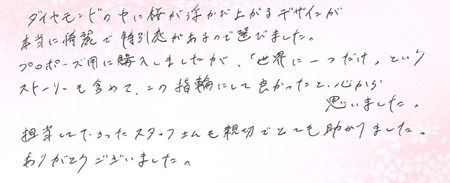 ダイヤモンドの中に桜が浮かび上がるデザインが
本当に綺麗で特別感があるので選びました。
プロポーズ用に購入しましたが、「世界に一つだけ」という
ストーリーも含めて、この指輪にして良かったと、心から
思いました。
担当して下さったスタッフさんも親切でとても助かりました。
ありがとうございました。